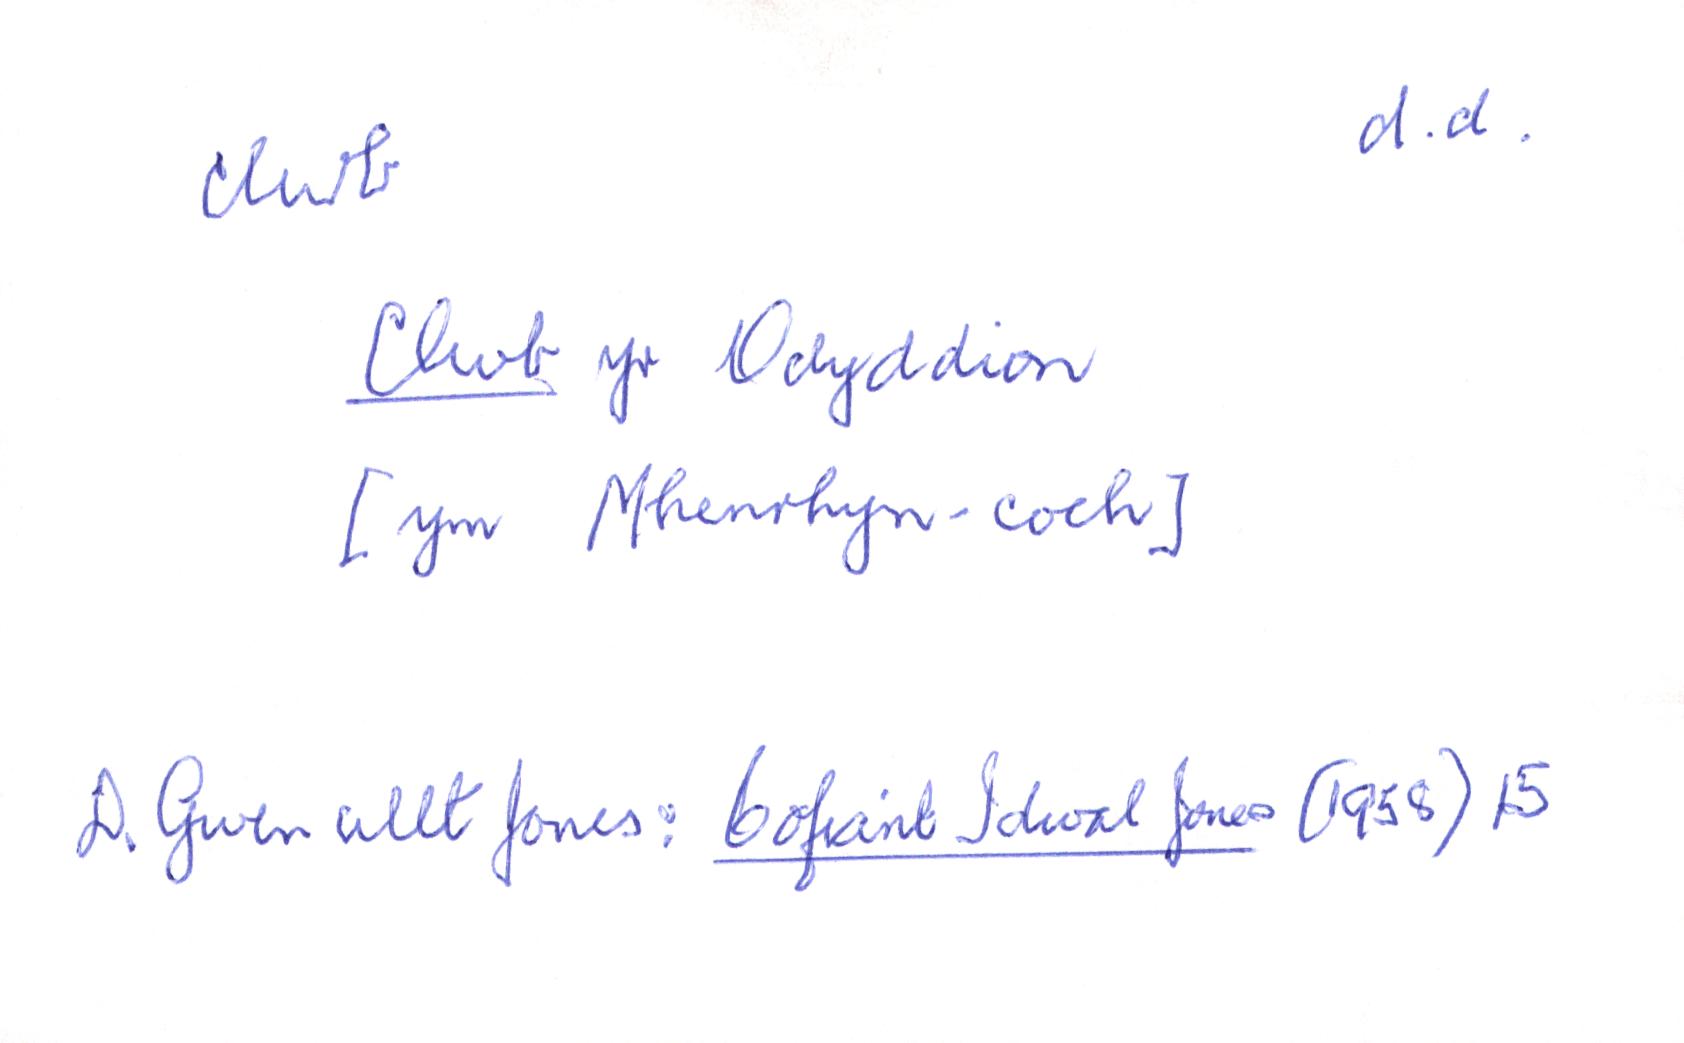 clwb
d.d.
Clwb yr Odyddion
[ym Mhenrhyn-coch]
D. Gwenallt Jones: Cofiant Idwal Jones (1958) 15